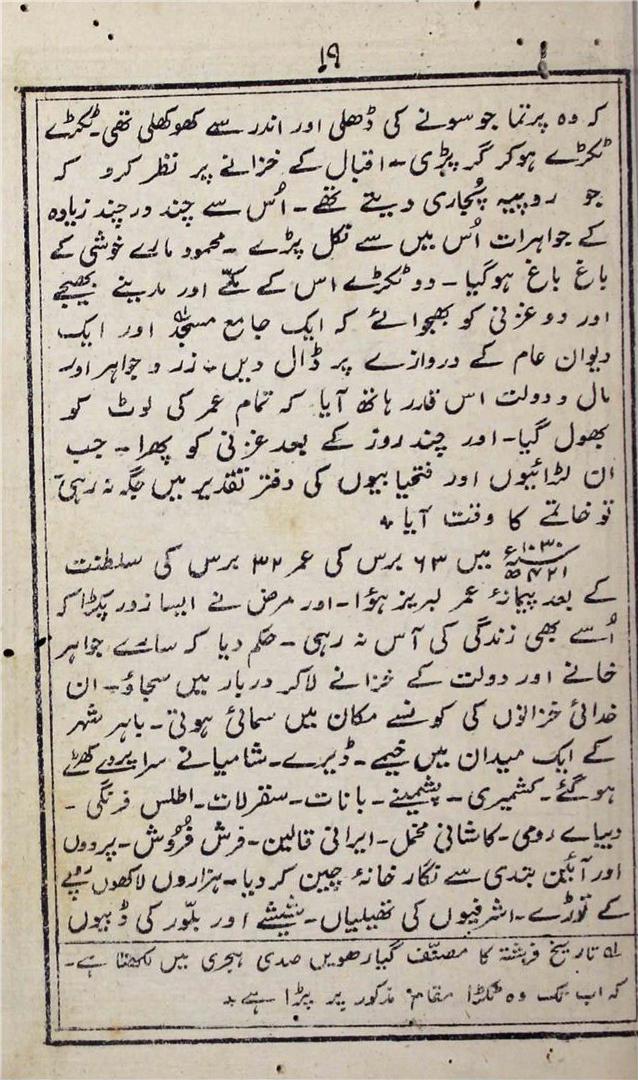 ۱۹
کہ وہ پرتما جو سونے کی ڈھلی اور اندر سے کھوکھلی تھی۔ ٹکڑے
ٹکڑے ہو کر گر پڑی۔ اقبال کے خزانے پر نظر کرو کہ
جو روپیہ پُجاری دیتے تھے۔ اُس سے چند در چند زیادہ
کے جواہرات اُس میں سے نکل پڑے۔ محمود مارے خوشی کے
باغ باغ ہوگیا۔ دو ٹکڑے اس کے مکّے اور مدینے بھیجے
اور دو غزنی کو بھجوائے کہ ایک جامع مسجد اور ایک
دیوان عام کے دروازے پر ڈال دیں۔ زر و جواہر اور
مال و دولت اس قدر ہاتھ آیا کہ تمام عمر کی لوٹ کو
بھول گیا۔ اور چند روز کے بعد غزنی کو پھرا۔ جب
ان لڑائیوں اور فتحیابیوں کی دفتر تقدیر میں جگہ نہ رہی۔
تو خاتمے کا وقت آیا ٭
۱۰۳۰ء ۴۲۱ھ میں ۶۳ برس کی عمر ۳۲ برس کی سلطنت
کے بعد پیمانۂ عمر لبریز ہؤا۔ اور مرض نے ایسا زور پکڑا کہ
اُسے بھی زندگی کی آس نہ رہی۔ حکم دیا کہ سارے جواہر
خانے اور دولت کے خزانے لاکر دربار میں سجاؤ۔ ان
خدائی خزانوں کی کونسے مکان میں سمائی ہوتی۔ باہر شہر
کے ایک میدان میں خیمے۔ ڈیرے۔ شامیانے سراپردے کھڑے
ہو گئے۔ کشمیری۔ پشمینے۔ بانات۔ سقرلات۔ اطلس فرنگی۔
دیباے رومی۔ کاشانی مخمل۔ ایرانی قالین۔ فرش فُرُوش۔ پردوں
اور آئین بندی سے نگار خانۂ چین کر دیا۔ ہزاروں لاکھوں روپے
کے توڑے۔ اشرفیوں کی تھیلیاں۔ شیشے اور بلّور کی ڈبیوں
لہ تاریخ فرشتہ کا مصنّف گیارھویں صدی ہجری میں لکھتا ہے۔
کہ اب تک وہ ٹکڑا مقام مذکور پر پڑا ہے ٭